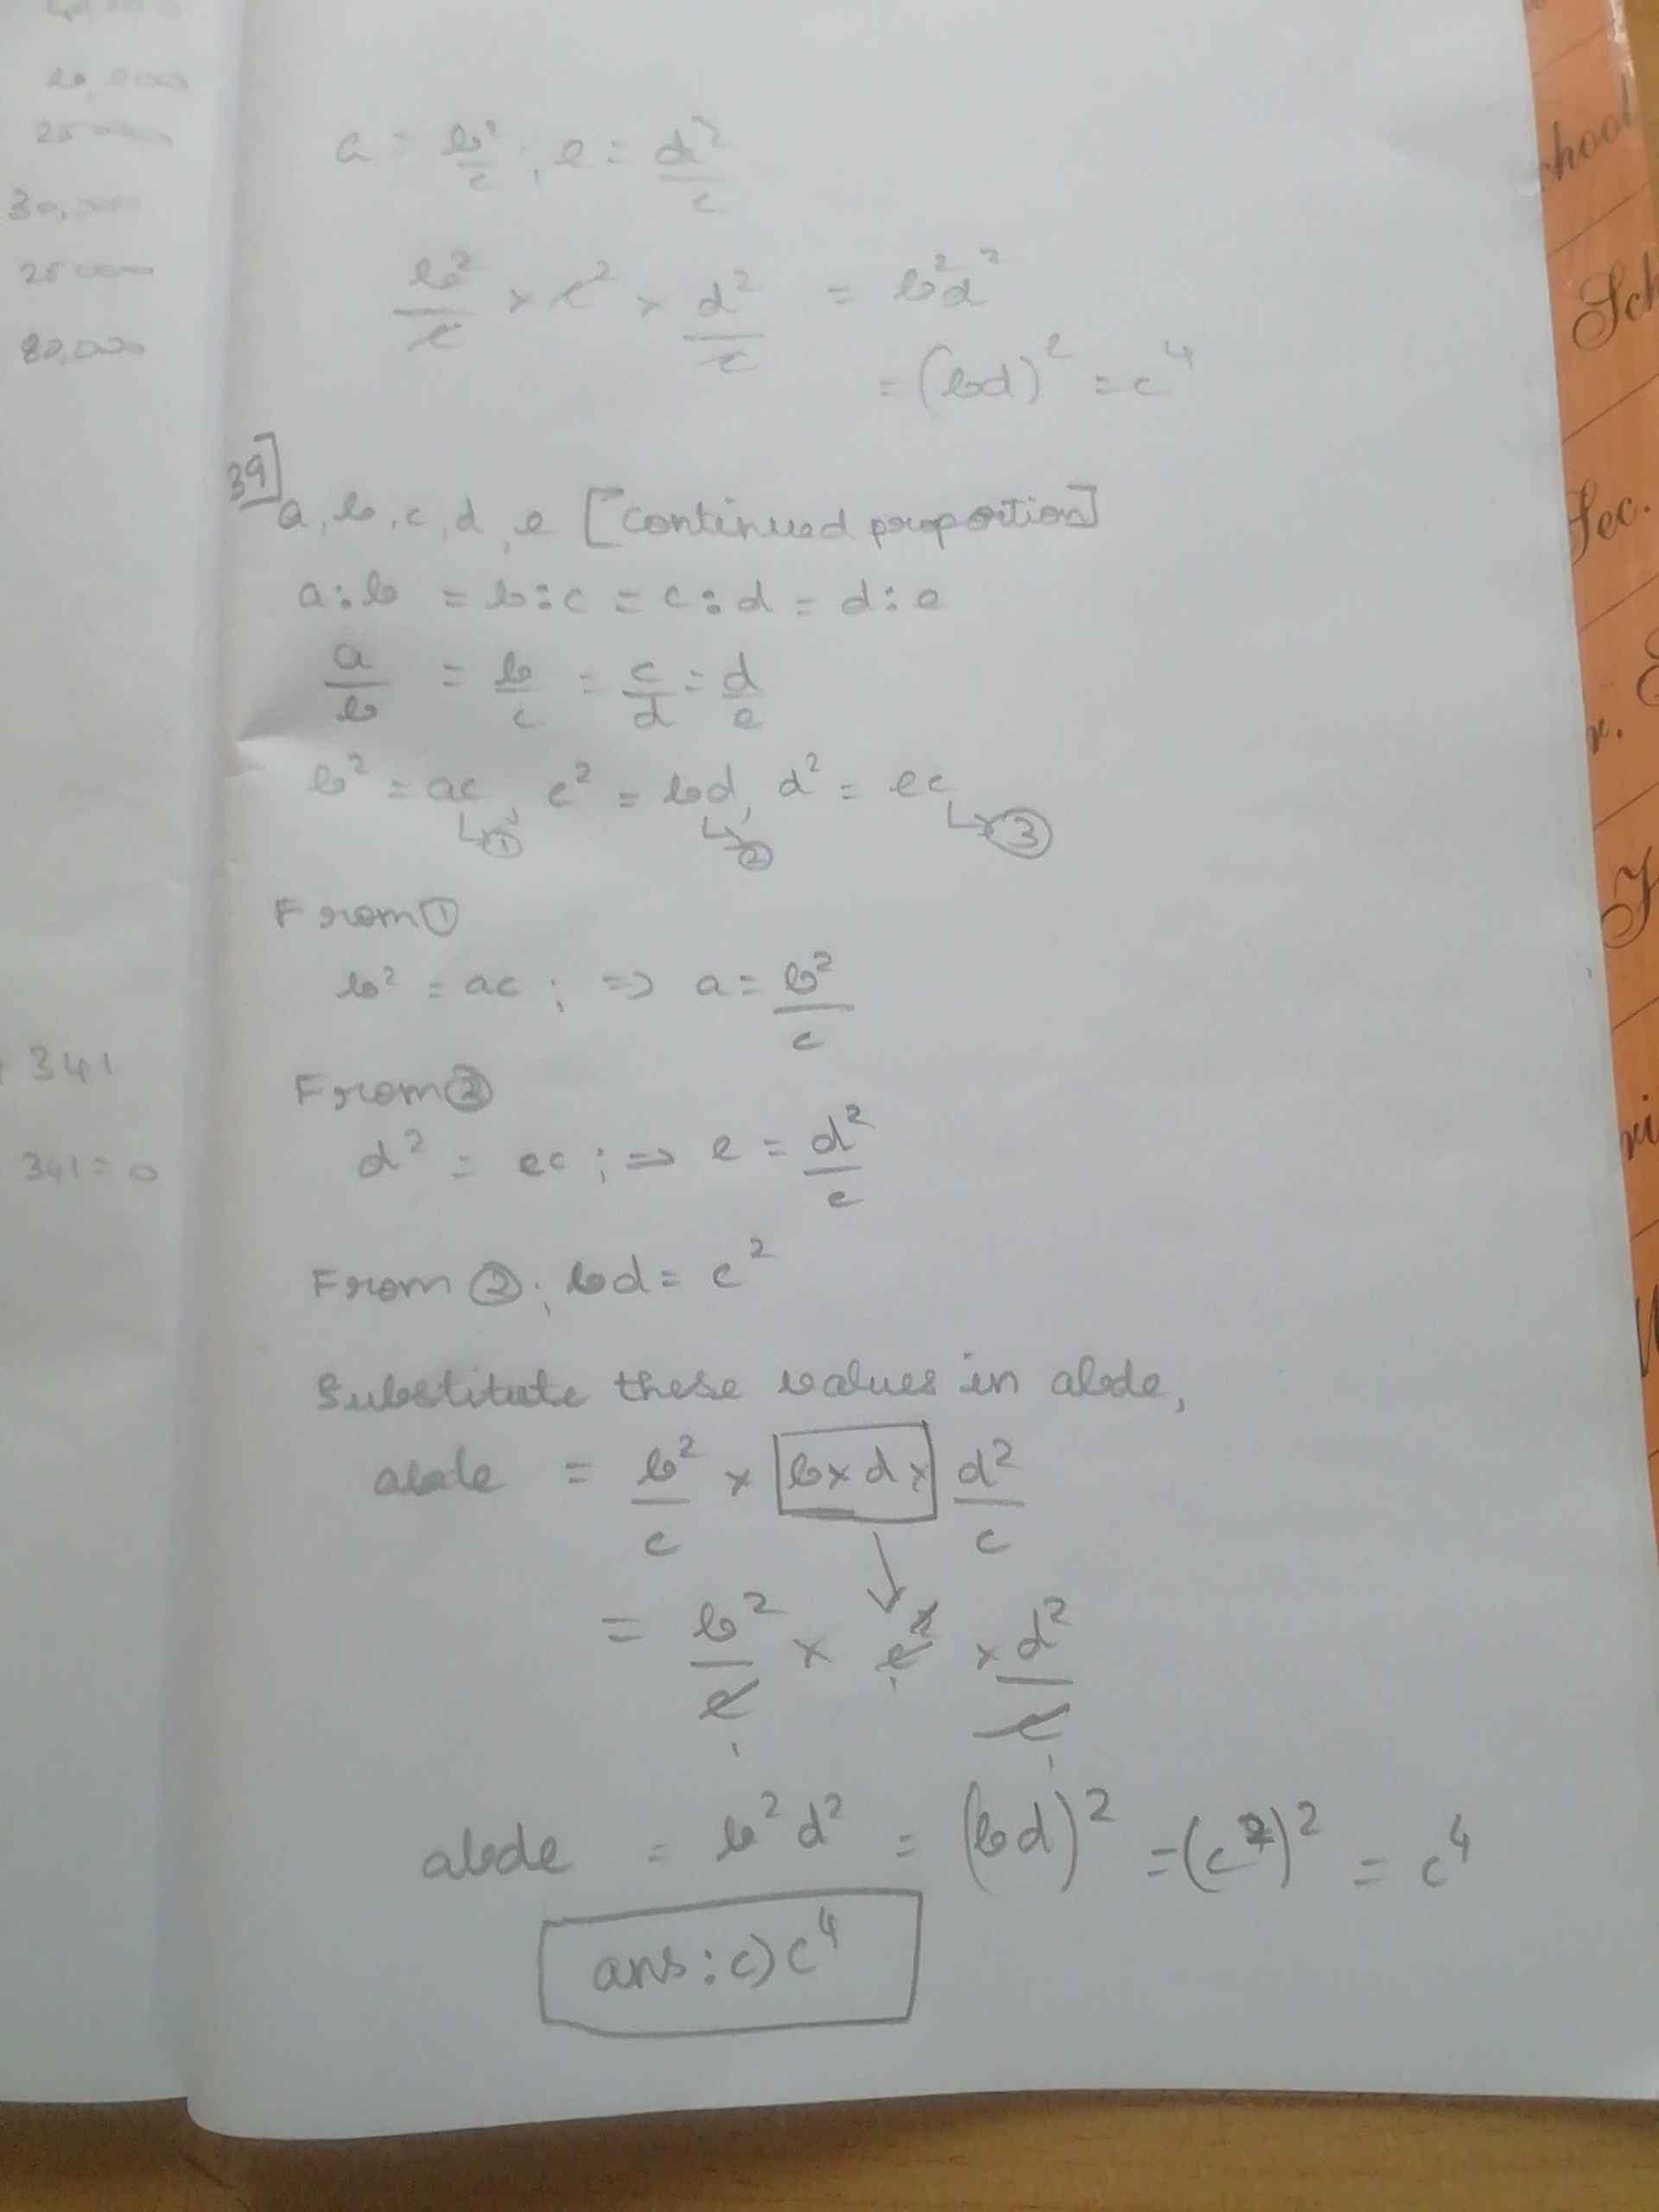 20,000
25000
30,000
25000
80,000
341
341 = 0
a = b²/c ; e = d²/c
b²/c × c² × d²/c = b²d²
= (bd)² = c⁴
39]
a, b, c, d, e [continued proportion]
a:b = b:c = c:d = d:e
a/b = b/c = c/d = d/e
b² = ac, c² = bd, d² = ec
↳① ↳② ↳③
From ①
b² = ac ; ⇒ a = b²/c
From ③
d² = ec ; ⇒ e = d²/c
From ②; bd = c²
Substitute these values in abde,
abde = b²/c × b × d × d²/c
= b²/c × c² × d²/c
abde = b²d² = (bd)² = (c²)² = c⁴
ans: c) c⁴
chool
Sch
Sec.